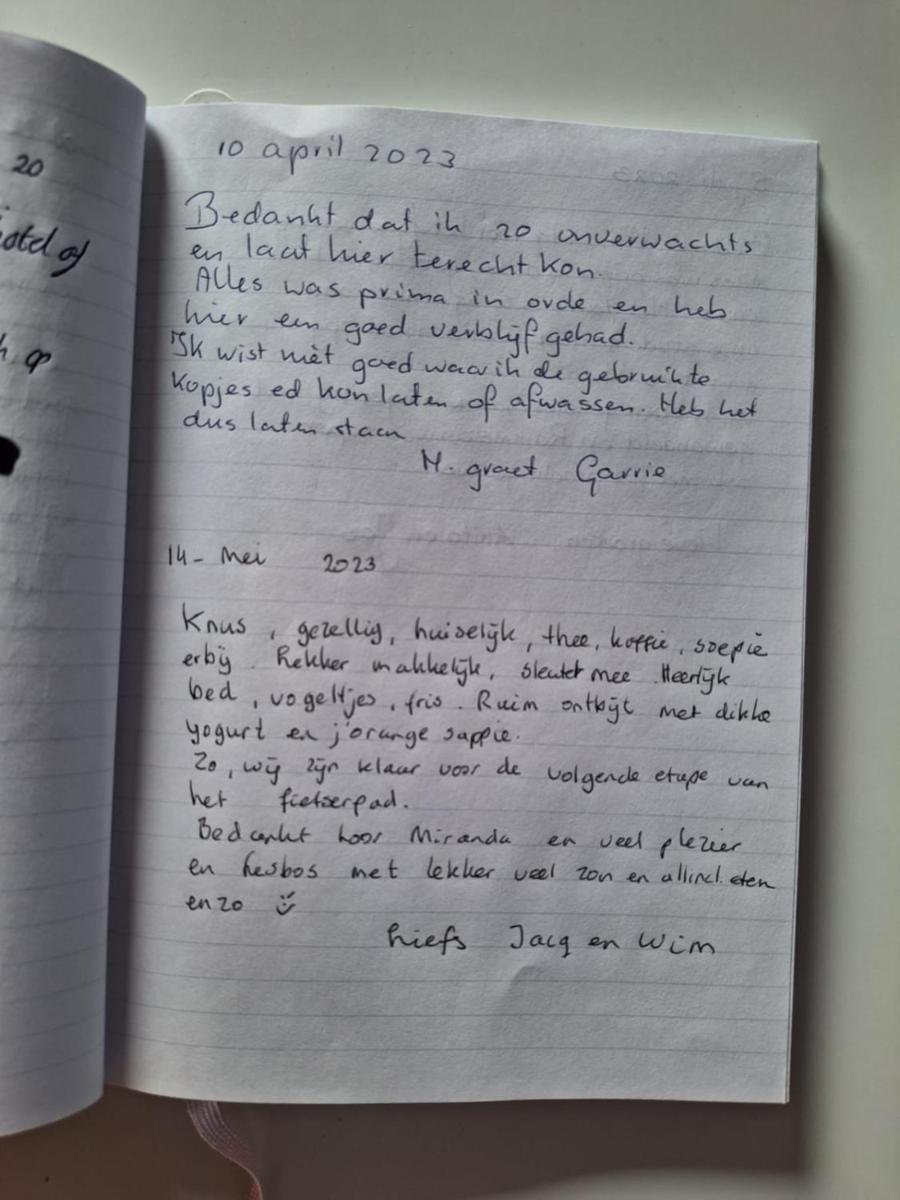 20
10 april 2023
Bedankt dat ik zo onverwachts
en laat hier terecht kon.
Alles was prima in orde en heb
hier een goed verblijf gehad.
Ik wist niet goed waar ik de gebruikte
kopjes ed kon laten of afwassen. Heb het
dus laten staan
M. groet Garrie
14- Mei 2023
Knus, gezellig, huiselijk, thee, koffie, soepie
erbij. Lekker makkelijk, sleutel mee. Heerlijk
bed, vogeltjes, fris. Ruim ontbijt met dikke
yogurt en j'orange sappie.
Zo, wij zijn klaar voor de volgende etape van
het fietserpad.
Bedankt hoor Miranda en veel plezier
en Lesbos met lekker veel zon en allincl. eten
enzo
Liefs Jacq en Wim